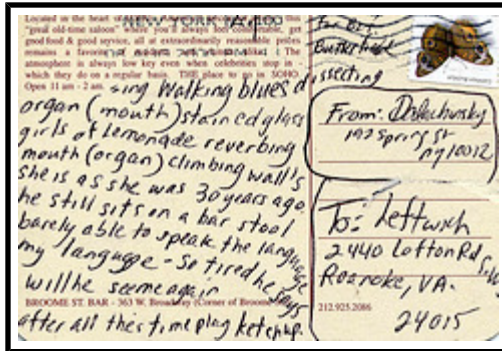 Located in the heart
NEW YORK NY 100
"great old-time saloon" where you'll always feel comfortable, get
good food & good service, all at extraordinarily reasonable prices
remains a favorite
atmosphere is always low key even when celebrities stop in
which they do on a regular basis. THE place to go in SOHO
Open 11 am - 2 am.
sing walking blues dissecting
organ (mouth) stained glass
girls of lemonade reverbing
mouth (organ) climbing walls
she is as she was 30 years ago
he still sits on a bar stool
barely able to speak the language
my language - So tired he says
will he see me again
BROOME ST. BAR - 363 W. Broadway (Corner of Broome
after all this time play ketchup.
For
Butterfield
From:
192 Spring St
NY 10012
To: Leftwich
2440 Lofton Rd S.W.
Roanoke, VA.
24015
212.925.2086